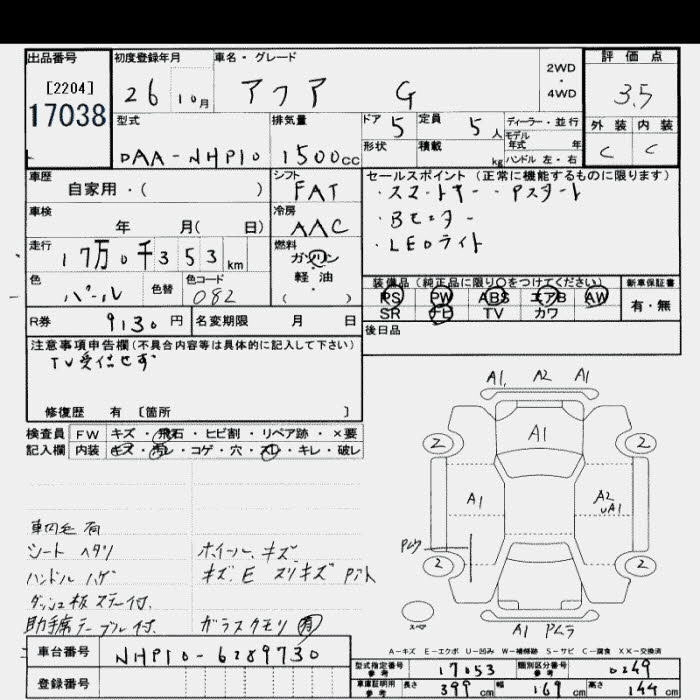 出品番号 初度登録年月 車名・グレード 2WD・4WD 評価点
[2204]
17038
26 10月 アクア G 3.5
型式 排気量 ドア 5 定員 5人 ディーラー・並行 外装 内装
モデル年式 年
DAA-NHP10 1500cc 形状 積載 kg ハンドル 左・右 C C
車歴 シフト セールスポイント(正常に機能するものに限ります)
自家用・( ) FAT ・スマートキー・Pスタート
車検 冷房 ・Bモニター
年 月( 日) AAC ・LEDライト
走行 燃料
17万0千353km ガソリン
軽・油
( )
色 色替 色コード 装備品(純正品に限り○をつけてください) 新車保証書
パール 082 PS PW ABS エアB AW 有・無
SR ナビ TV カワ
R券 9130円 名変期限 月 日 後日品
注意事項申告欄(不具合内容等は具体的に記入して下さい)
TV受信せず
修復歴 有 [箇所 ]
検査員 FW キズ・飛石・ヒビ割・リペア跡・×要
記入欄 内装 キズ・汚レ・コゲ・穴・スレ・キレ・破レ
A1 A2 A1
A1
2 2
A1 A2
UA1
2 2
スペア
A1
車内毛 有
シート ヘタリ ホイール、キズ
ハンドル ハゲ キズ、E スリキズ
ダッシュ板 ステー付、
助手席テーブル付、 ガラスクモリ 有
A-キズ E-エクボ U-凹み W-補修跡 S-サビ C-腐食 XX-交換済
車台番号 NHP10-6289730
登録番号
型式指定番号 参考 17053 類別区分番号 参考 0249
車庫証明用 参考 長さ 399cm 幅 169cm 高さ 144cm